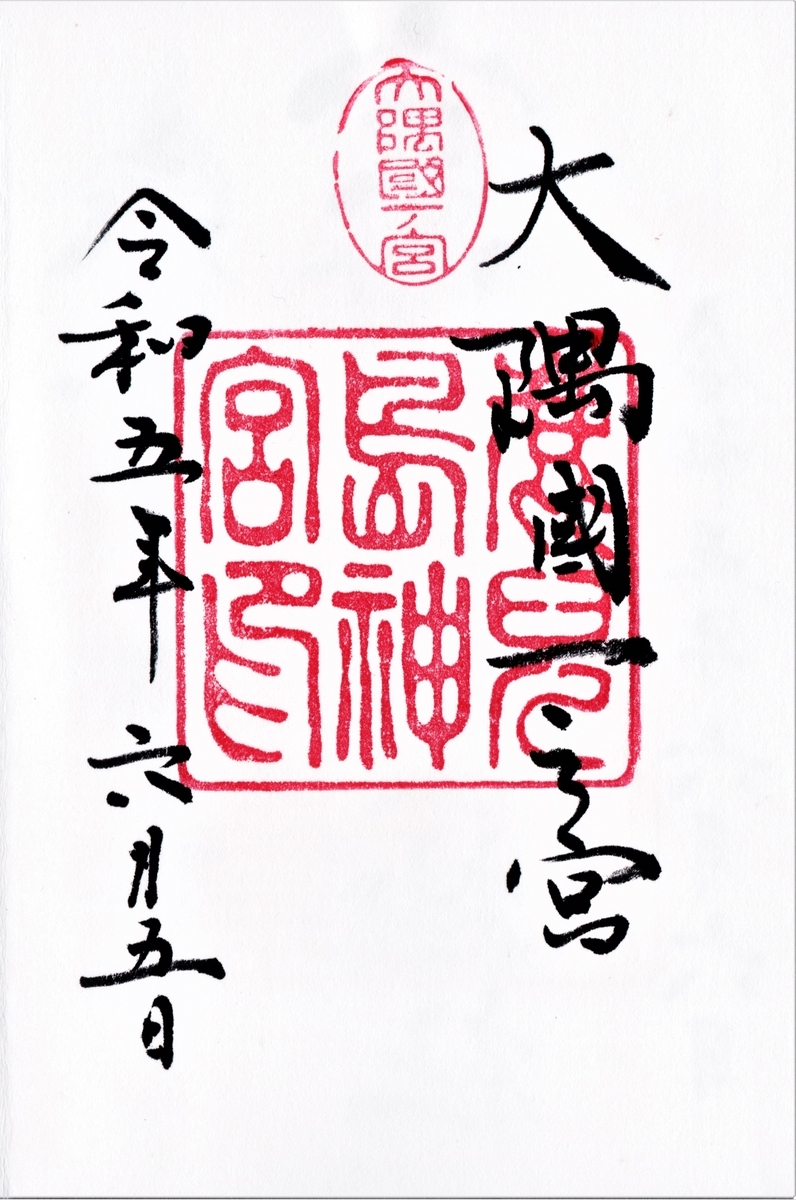 大隅國一之宮
大隅國一ノ宮
鹿兒
島神
宮印
令和五年六月五日